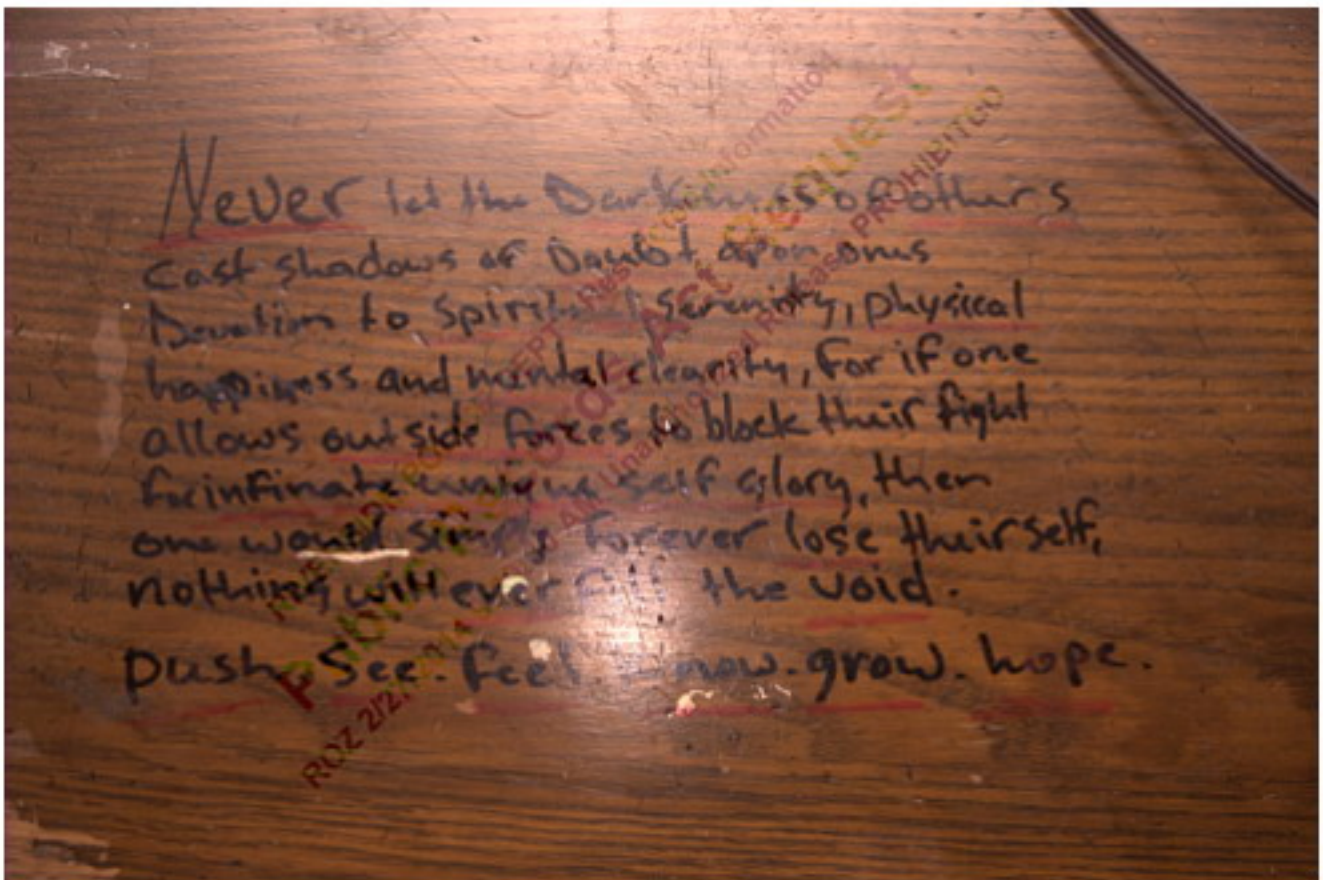 Never let the Darkness of others
Cast shadows of Doubt apon ones
Devotion to Spiritual Serenity, physical
happiness and mental clearity, for if one
allows outside forces to block their fight
for infinate unique self glory, then
one would simply forever lose their self,
nothing will ever fill the void.
Push. See. feel now. grow. hope.
Public Request
ROZ 2/2